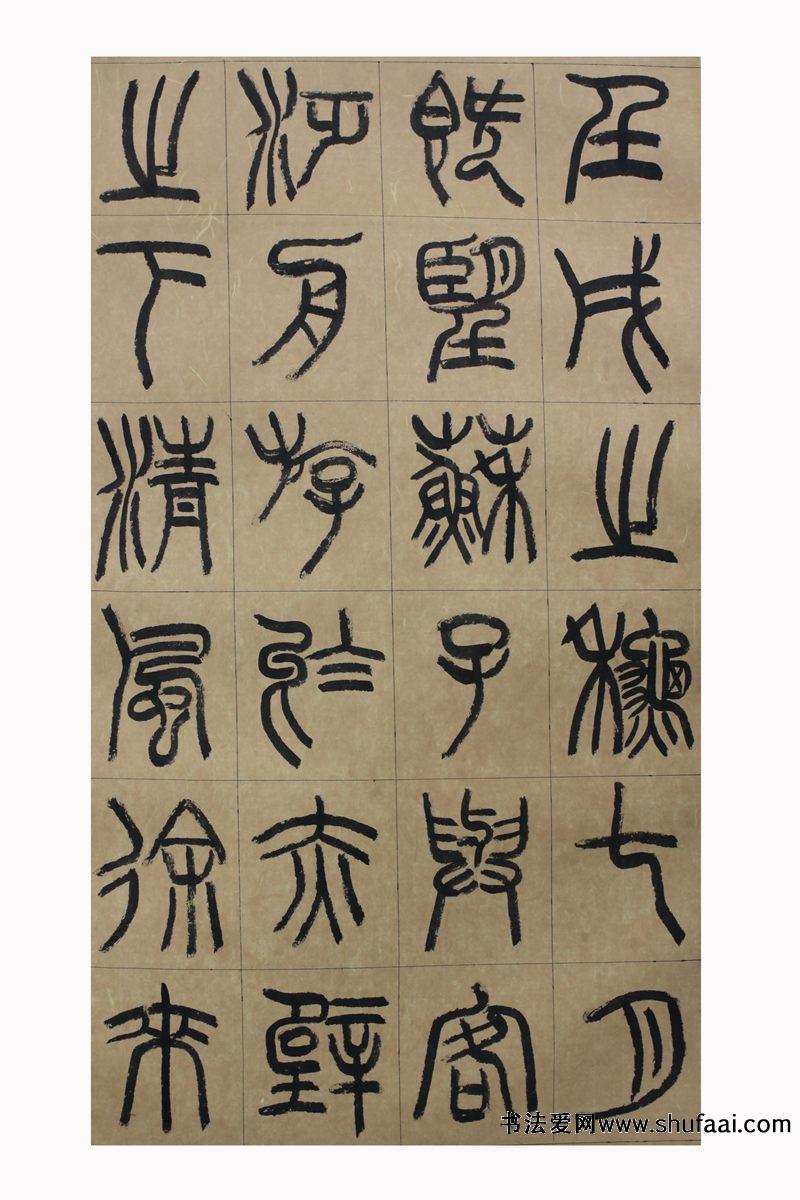 壬戌之龝七月
既望蘇子與客
泛舟游於赤壁
之下清風徐來
书法爱网www.shufaai.com